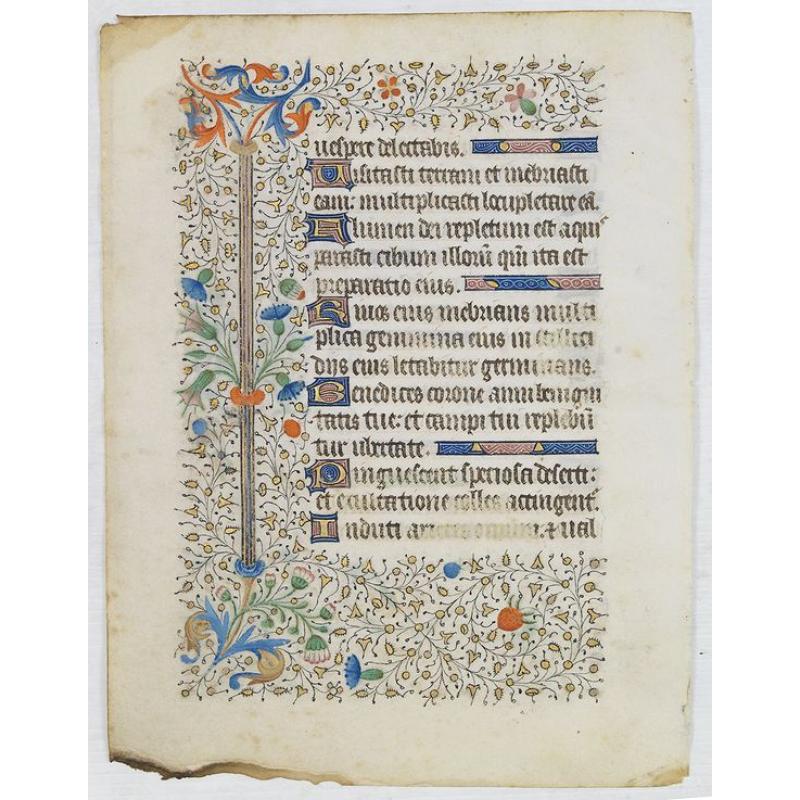 uespere delectabis.
Uisitasti terram et inebriasti
eam: multiplicasti locupletare eā.
Flumen dei repletum est aquis
parasti cibum illorū qm̄ ita est
preparatio eius.
Riuos eius inebrians multi
plica genimina eius in stillici
dijs eius letabitur germinans.
Benedices corone anni benigni
tatis tue: et campi tui replebū
tur ubertate.
Pinguescent speciosa deserti:
et exultatione colles accingent᷒.
Induti arietes ouium. et ual